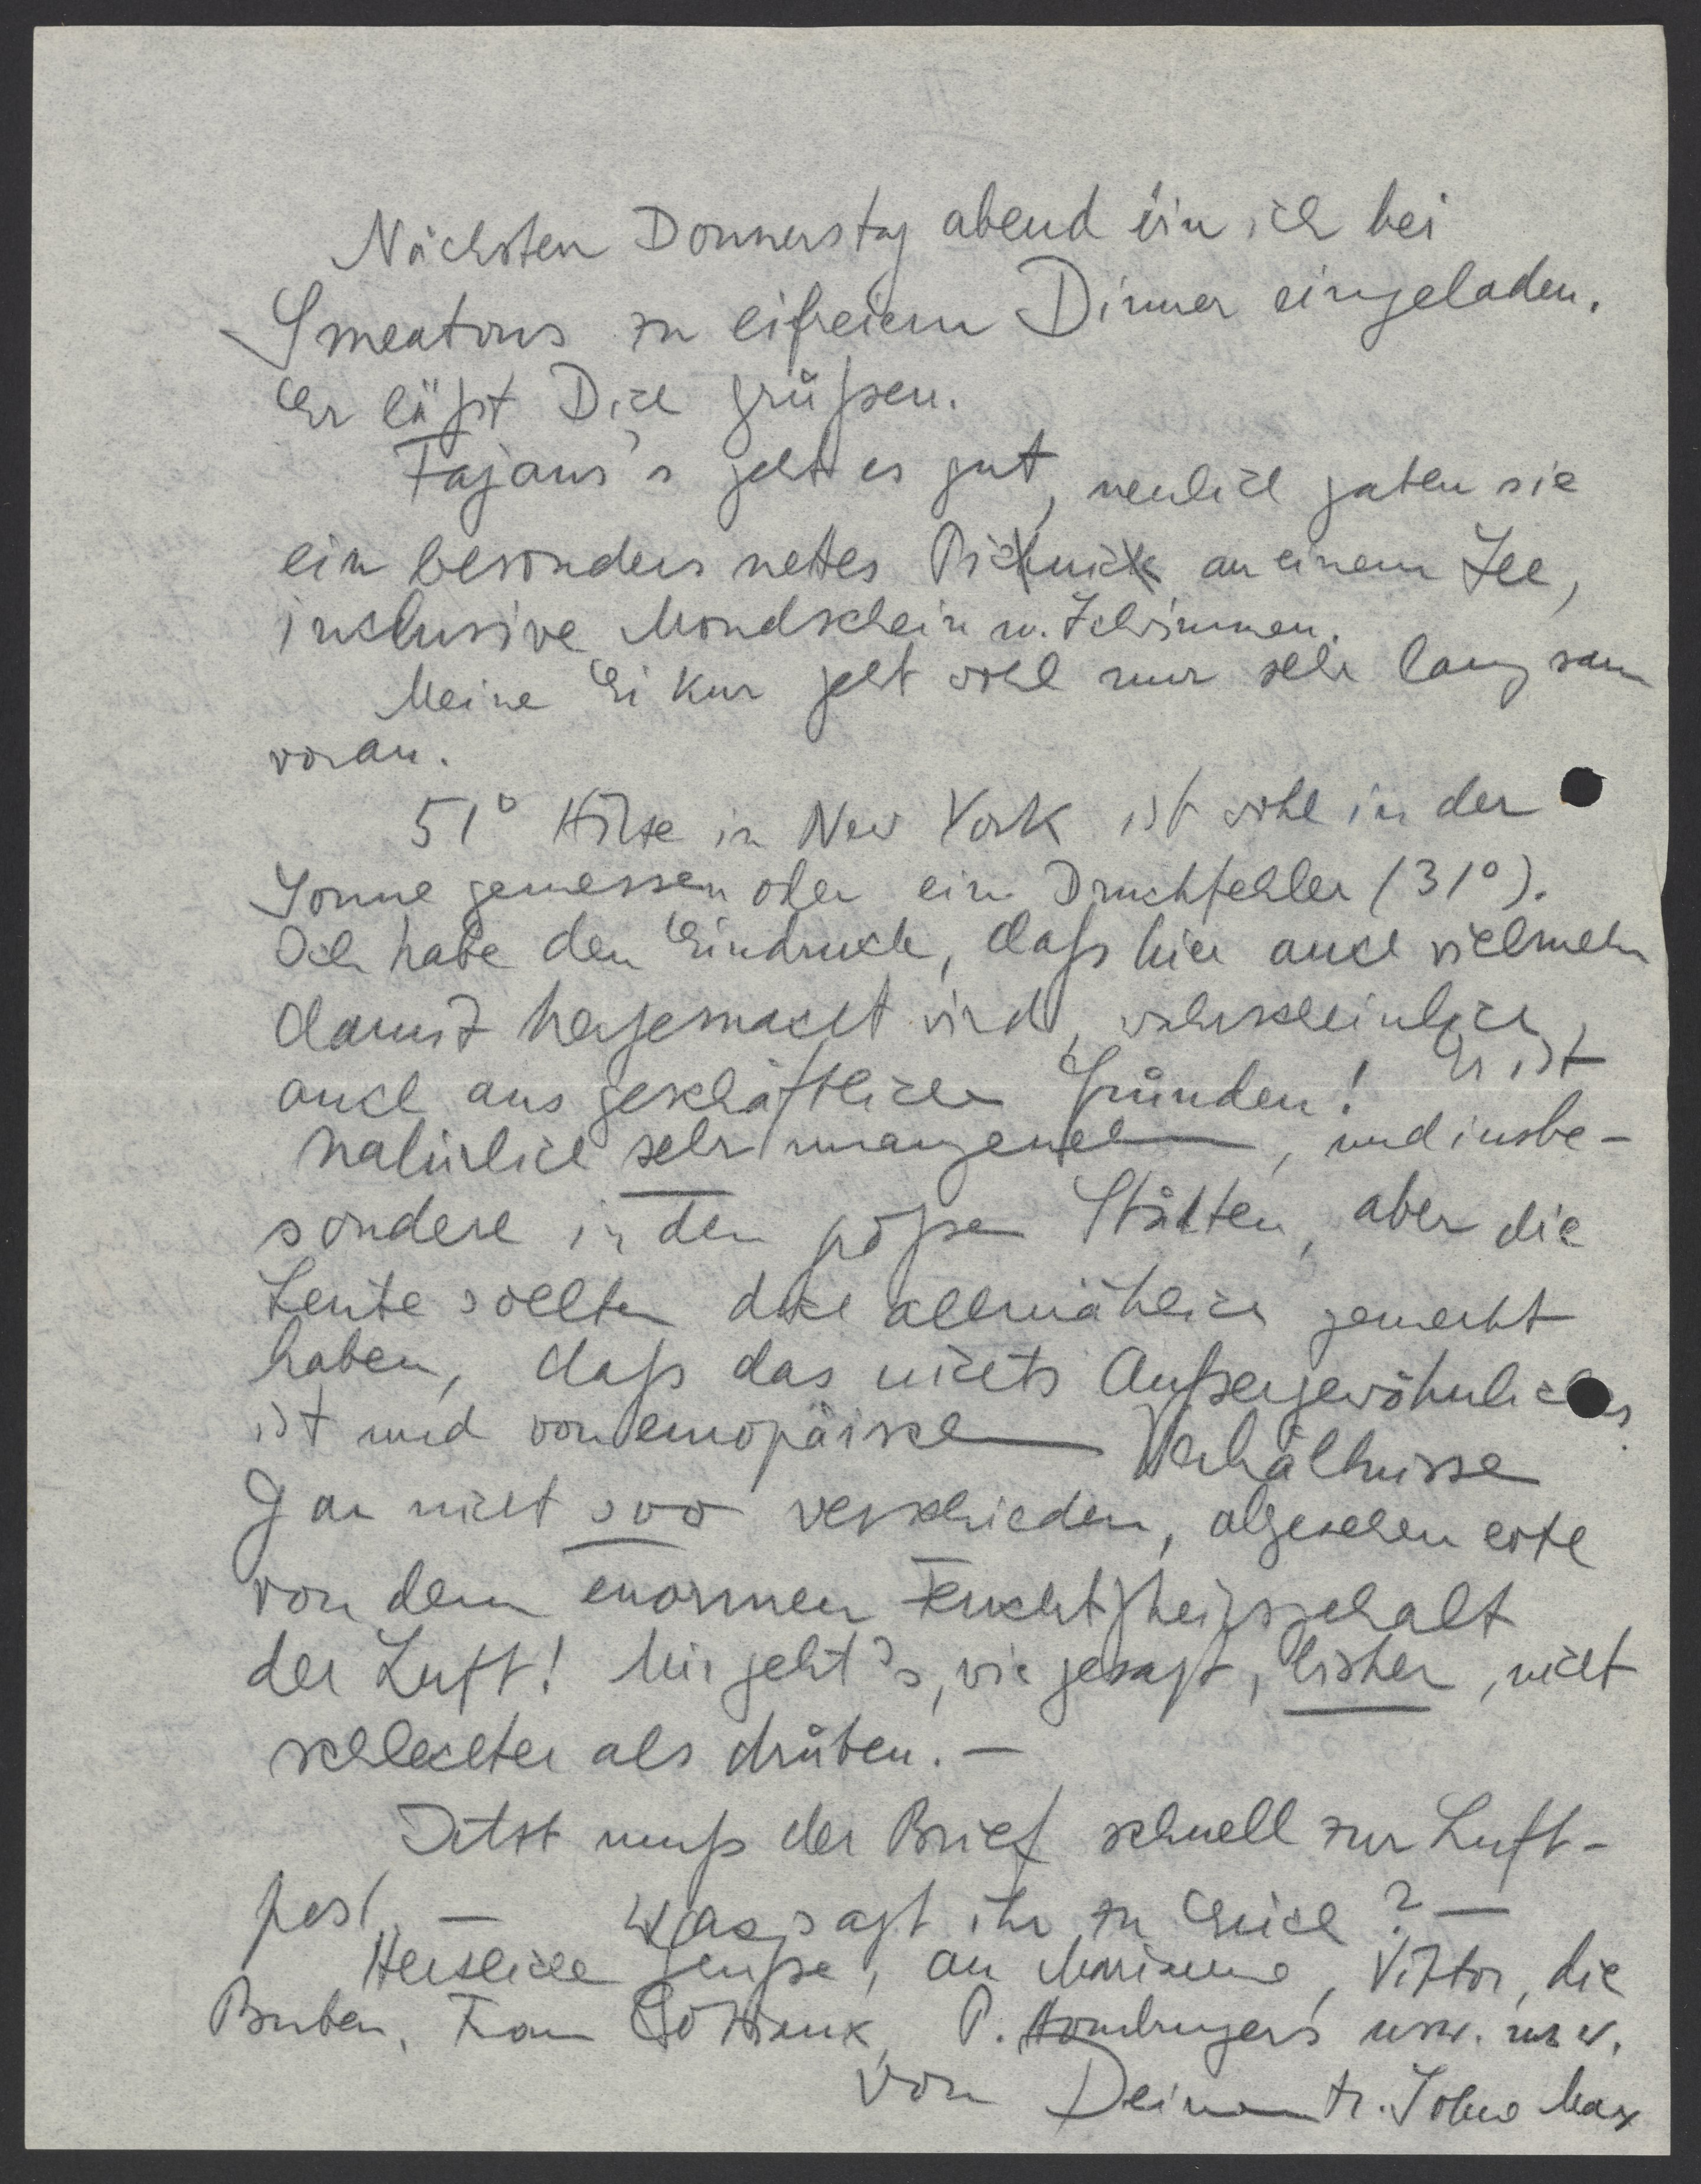 Nächsten Donnerstag abend bin ich bei
Smeatons zu eifreiem Dinner eingeladen.
Er läßt Dich grüßen.
Fajans's geht es gut, neulich gaben sie
ein besonders nettes Picknick an einem See,
inclusive Mondschein u. Schwimmen.
Meine Ei Kur geht wohl nur sehr langsam
voran.
51° Hitze in New York ist wohl in der
Sonne gemessen oder ein Druckfehler (31°).
Ich habe den Eindruck, daß hier auch vielmehr
damit hergemacht wird, wahrscheinlich
auch aus geschäftlichen Gründen! Es ist
natürlich sehr unangenehm, und insbe-
sondere in den großen Städten, aber die
Leute sollten doch allmählich gemerkt
haben, daß das nichts Außergewöhnliches
ist und von europäischen Verhältnissen
gar nicht soo verschieden, abgesehen
von dem enormen Feuchtigkeitsgehalt
der Luft! Mir geht's, wie gesagt, bisher, nicht
schlechter als drüben. —
Jetzt muß der Brief schnell zur Luft-
post. — Was sagt ihr zu Erich? —
Herzliche Grüße, an Marianne, Viktor, die
Buben, Frau P. Homburgers usw. usw.
von Deinem tr. Sohne Max